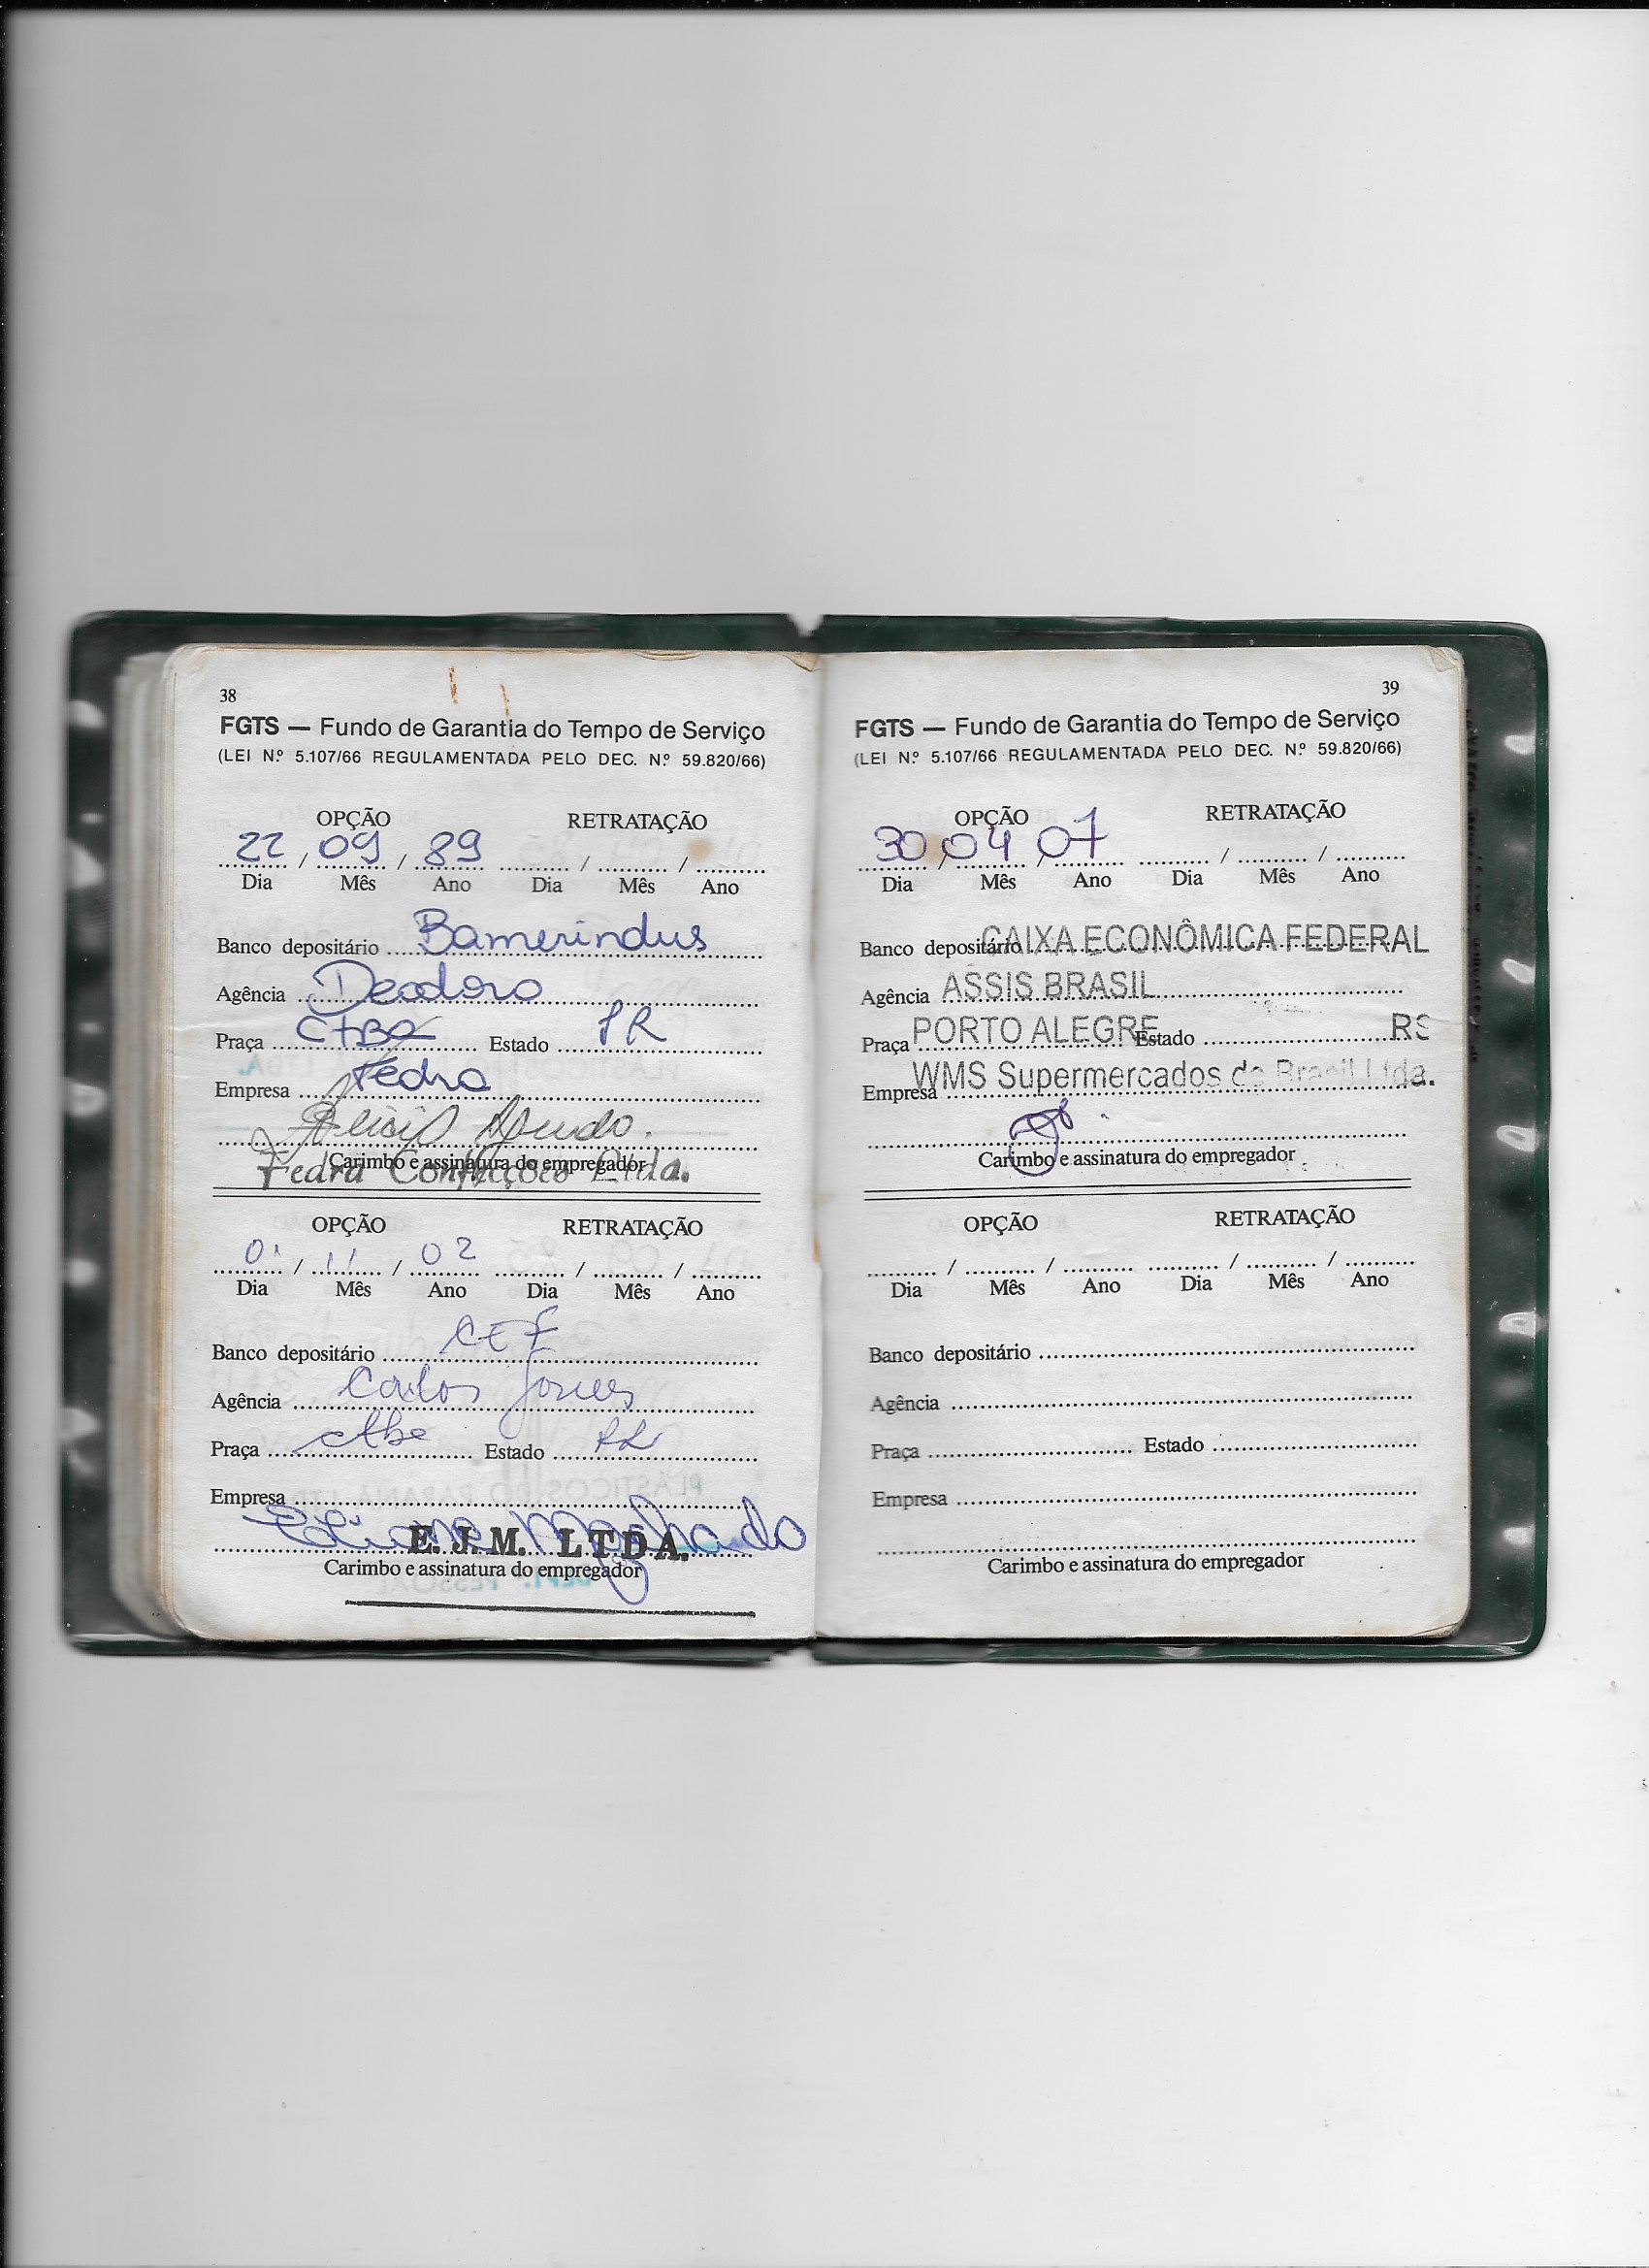 38
FGTS — Fundo de Garantia do Tempo de Serviço
(LEI N.º 5.107/66 REGULAMENTADA PELO DEC. N.º 59.820/66)
OPÇÃO RETRATAÇÃO
22 / 09 / 89 / /
Dia Mês Ano Dia Mês Ano
Banco depositário Bamerindus
Agência Deodoro
Praça CTBA Estado PR
Empresa Fedra
Carimbo e assinatura do empregador
Fedra Confecções Ltda.
OPÇÃO RETRATAÇÃO
01 / 11 / 02 / /
Dia Mês Ano Dia Mês Ano
Banco depositário CEF
Agência Carlos Gomes
Praça Ctba Estado PR
Empresa
Eliane Machado
E. J. M. LTDA.
Carimbo e assinatura do empregador
39
FGTS — Fundo de Garantia do Tempo de Serviço
(LEI N.º 5.107/66 REGULAMENTADA PELO DEC. N.º 59.820/66)
OPÇÃO RETRATAÇÃO
30 / 04 / 07 / /
Dia Mês Ano Dia Mês Ano
Banco depositário CAIXA ECONÔMICA FEDERAL
Agência ASSIS BRASIL
Praça PORTO ALEGRE Estado RS
Empresa WMS Supermercados do Brasil Ltda.
Carimbo e assinatura do empregador
OPÇÃO RETRATAÇÃO
/ / / /
Dia Mês Ano Dia Mês Ano
Banco depositário
Agência
Praça Estado
Empresa
Carimbo e assinatura do empregador